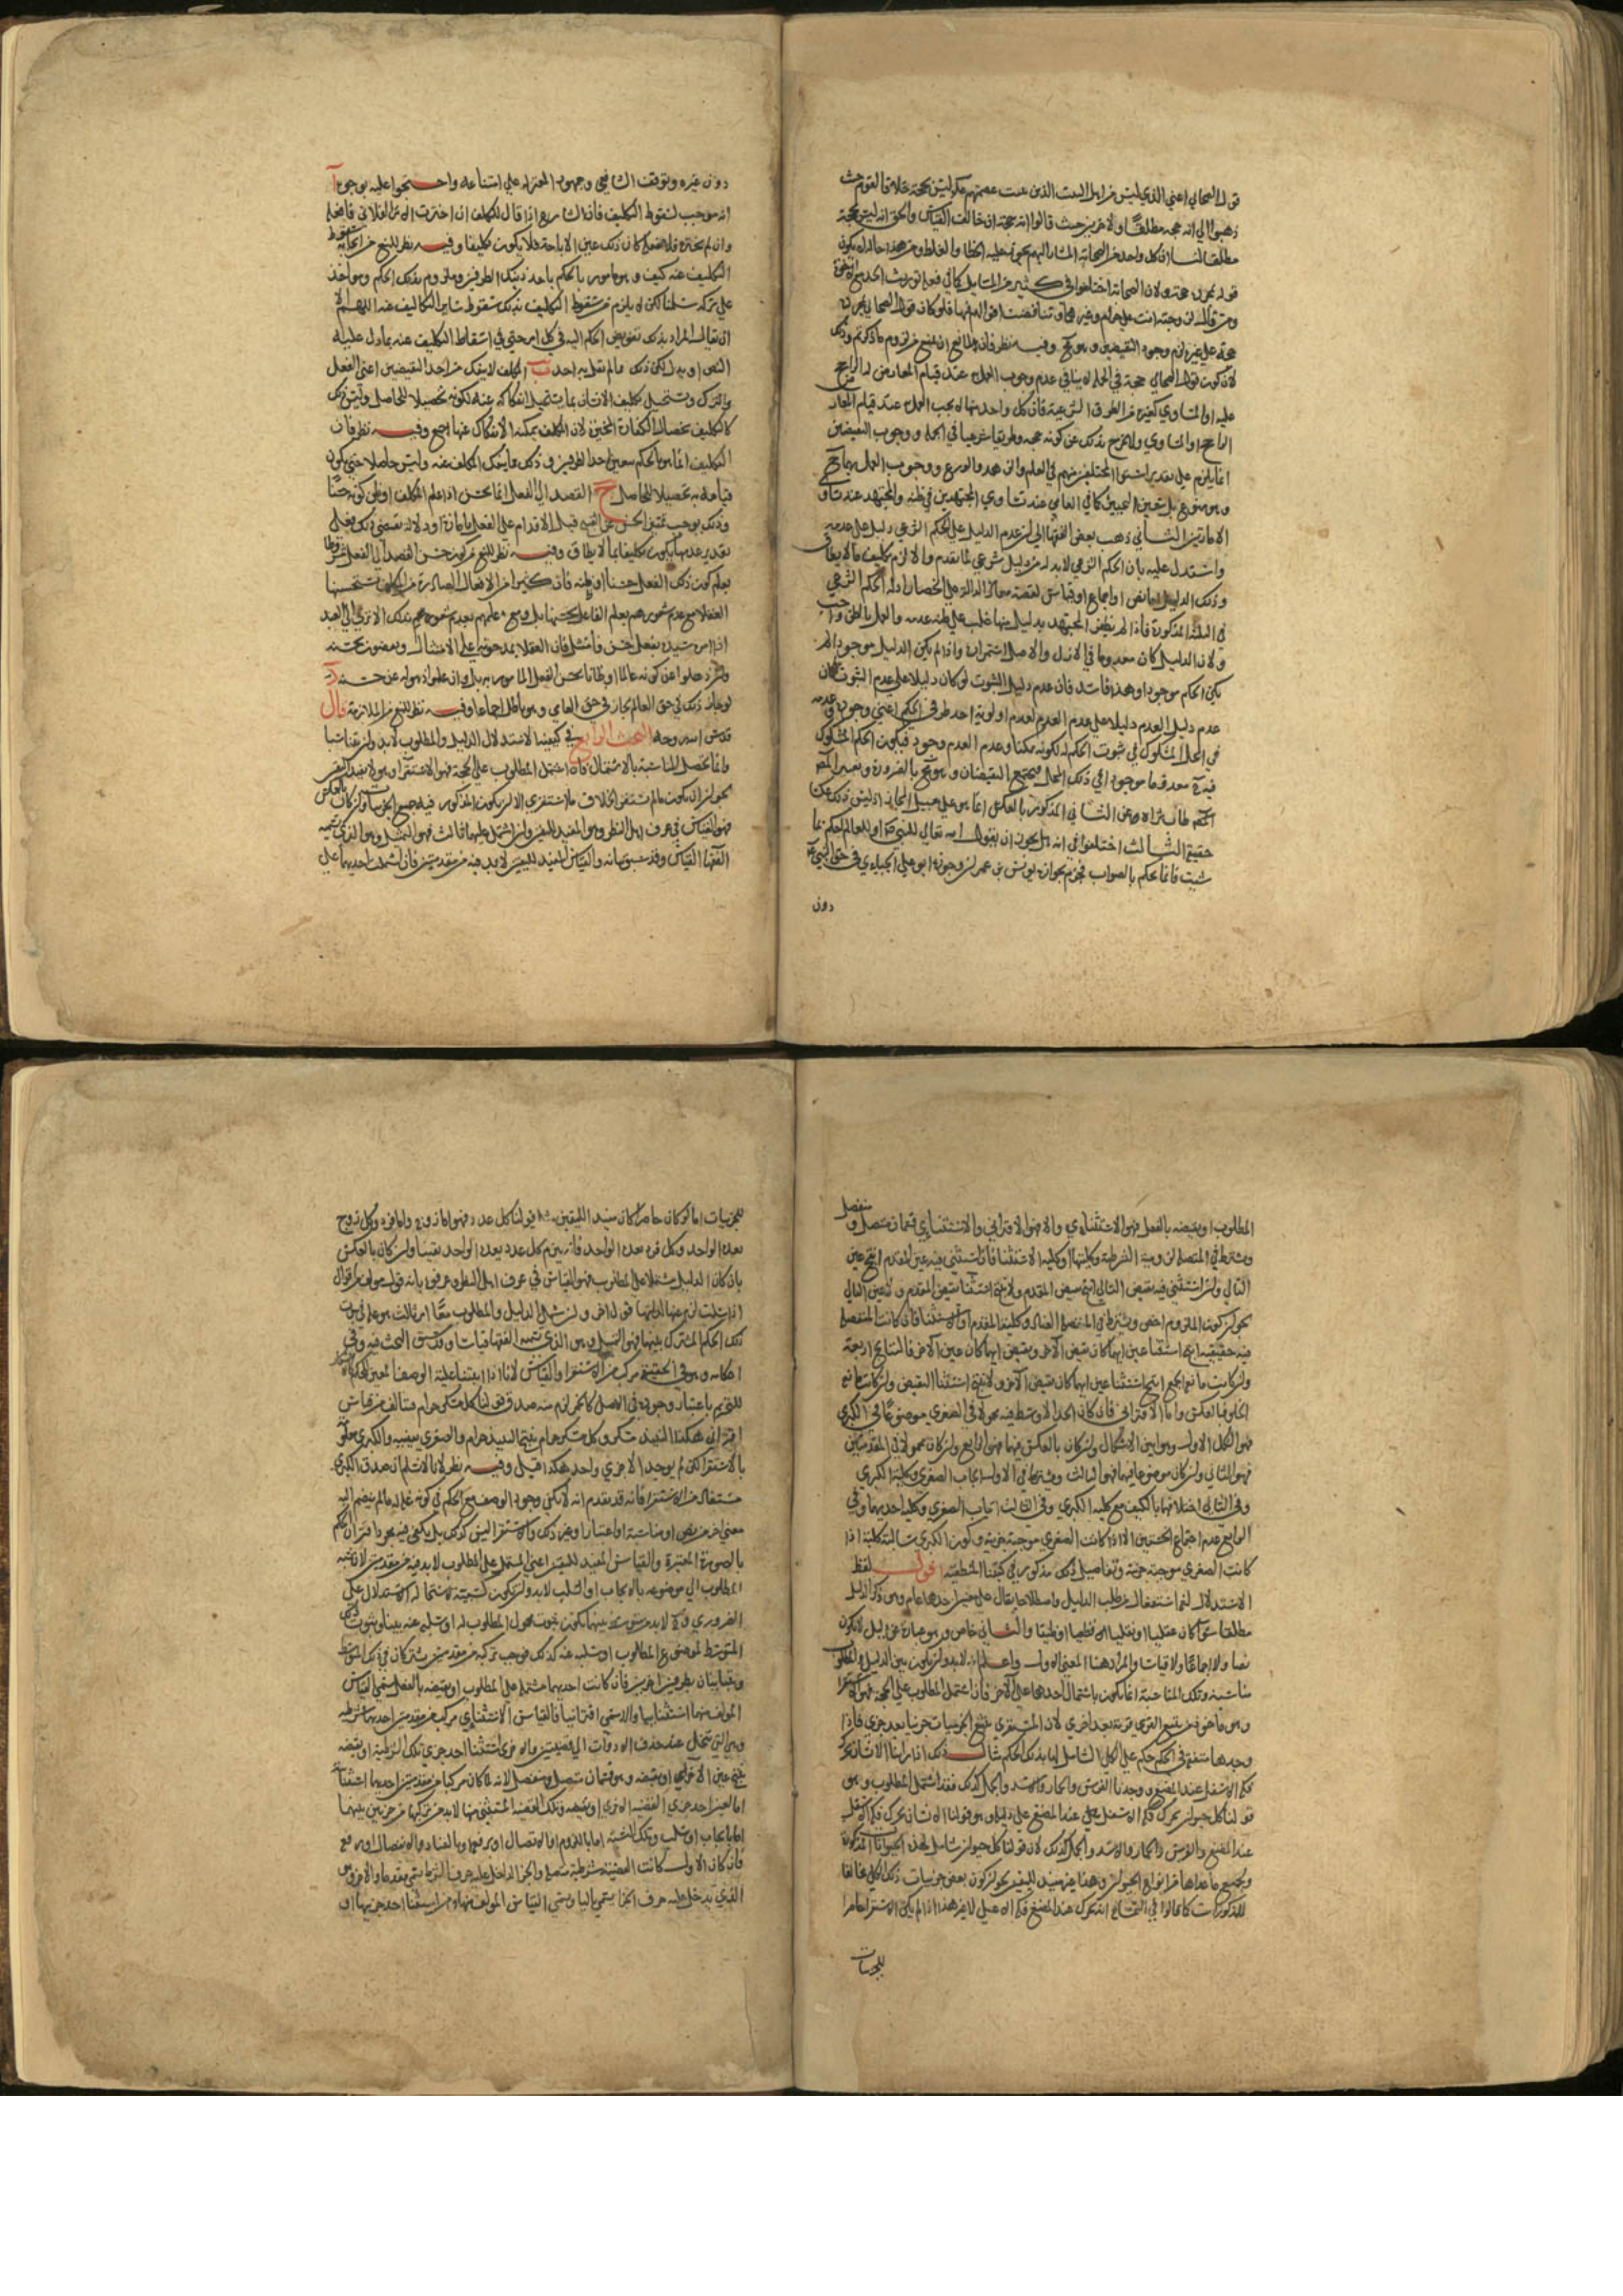 قول الصحابي اعني الذي ليس من اهل البيت الذين عصمتهم ليس بحجة خلافا لقوم حيث
ذهبوا الي انه حجه مطلقا ولاخرين حيث قالوا انه حجة ان خالف القياس والحق انه ليس بحجة
مطلقا لنا ان كل واحد من الصحابة المشار اليهم يجوز عليه الخطا والغلط ومن هذا حاله لا يكون
قوله بمجرده حجة ولان الصحابة اختلفوا في كثير من المسايل
حجة علي غيره لزم وجود النقيضين وهو مح وفيه نظر فان للمانع ان يمنع من لزوم ما ذكرتم وذلك
لان كون قول الصحابي حجة في الجملة لا ينافي عدم وجوب العمل عند قيام المعارض له الراجح
عليه او المساوي كغيره من الطرق الشرعية فان كل واحد منها لا يجب العمل به عند قيام المعارض
الراجح او المساوي ولا يخرج بذلك عن كونه حجه وطريقا شرعيا في الجملة ووجوب النقيضين
انما يلزم علي تقدير استوا المختلفين منهم في العلم والزهد والورع ووجوب العمل بهما مح
وهو ممنوع بل يتعين التخيير كما في العامي عند تساوي المجتهدين في ظنه والمجتهد عند تساوي
الامارتين الثاني ذهب بعض الفقها الي ان عدم الدليل علي الحكم الشرعي دليل علي عدمه
واستدل عليه بان الحكم الشرعي لا بد له من دليل شرعي لما تقدم والا لزم تكليف ما لا يطاق
وذلك الدليل اما نص او اجماع او قياس لقصة معاذ الدالة علي انحصار ادلة الحكم الشرعي
في الثلثة المذكورة فاذا لم يظفر المجتهد بدليل منها غلب علي ظنه عدمه والعمل بالظن واجب
ولان الدليل كان معدوما في الازل والاصل استمراره واذا لم يكن الدليل موجودا لم
يكن الحكم موجودا وهذا فاسد فان عدم دليل الثبوت لو كان دليلا علي عدم الثبوت لكان
عدم دليل العدم دليلا علي عدم العدم لعدم اولوية احد طرفي الحكم اعني وجوده وعدمه
في المحل المشكوك في ثبوت الحكم له لكونه ممكنا وعدم العدم وجود فيكون الحكم المشكوك
فيه معدوما موجودا في ذلك المحل فيجتمع النقيضان وهو مح بالضرورة
حقيقة الثالث اختلفوا في انه هل يجوز ان يقول الله تعالي للنبي او للعالم احكم بما
شيت فانك تحكم بالصواب فجزم بجوازه يونس بن عمران وجوزه ابو علي الجبايي في حق النبي
دون
دون غيره وتوقف الشافعي وجمهور المعتزله علي امتناعه واحتجوا عليه بوجوه آ
انه موجب لسقوط التكليف فان الشارع اذا قال للمكلف ان اخترت الامر الفلاني فافعله
وان لم تختره فلا تفعله كان ذلك عين الاباحة فلا يكون تكليفا وفيه نظر للمنع من
التكليف عنه كيف وهو مامور بالحكم باحد ذينك الطرفين وملزوم بذلك الحكم ومواخذ
علي تركه سلمنا لكن لا يلزم من سقوط التكليف بذلك سقوط ساير التكاليف عنه اللهم الا
ان يقال المراد بذلك تفويض الحكم اليه في كل امر حتي في اسقاط التكليف عنه بما دل عليه
النص او بدله لكن ذلك مما لم يقل به احد ب المكلف لا ينفك من احد النقيضين اعني الفعل
والترك ويستحيل تكليف الانسان بما يستحيل انفكاكه عنه لكونه تحصيلا للحاصل وليس ذلك
كالتكليف بخصال الكفارة المخيرة لان المكلف يمكنه الانفكاك عنها اجمع وفيه نظر فان
التكليف انما هو بالحكم بتعين احد الطرفين وذلك مما ينفك المكلف عنه وليس حاصلا حتي يكون
قيامه به تحصيلا للحاصل ج القصد الي الفعل انما يحسن اذا علم المكلف او ظن كونه حسنا
وذلك يوجب تميز الحسن عن القبيح قبل الاقدام علي الفعل بامارة او دلالة تقتضي ذلك فعلي
تقدير عدمها يكون تكليفا بما لا يطاق وفيه نظر للمنع من كون حسن القصد الي الفعل مشروطا
بعلم كون ذلك الفعل حسنا او ظنه فان كثيرا من الافعال الصادرة من المكلف يستحسنها
العقلا مع عدم شعورهم بعلم الفاعل بحسنها
اذا امر سيده بفعل حسن فامتثل فان العقلا يمدحونه علي الامتثال ويصفون بحسنه
لو جاز ذلك في حق العالم لجاز في حق العامي وهو باطل اجماعا وفيه نظر للمنع من الملازمة قال
قدس الله روحه البحث الرابع في كيفية الاستدلال الدليل والمطلوب لا بد وان يتناسبا
وانما تحصل المناسبة بالاشتمال فان اشتمل المطلوب علي الحجة فهو الاستقرا وهو لا يفيد اليقين
لجواز ان يكون ما لم يستقر بخلاف ما استقري الا ان يكون المذكور فيه جميع الجزييات وان كان بالعكس
فهو القياس في عرف اهل النظر وهو المفيد لليقين وان اشتمل عليهما ثالث فهو التمثيل وهو الذي تسميه
الفقها القياس وقد سبق بيانه والقياس المفيد لليقين لا بد فيه من مقدمتين فان اشتملت احديهما علي
المطلوب او نقيضه بالفعل فهو الاستثنايي والا فهو الاقتراني والاستثنايي قسمان متصل ومنفصل
ويشترط في المتصل لزومية الشرطية وكليتها او كلية الاستثنا فان استثني فيه عين المقدم انتج عين
التالي وان استثني فيه نقيض التالي انتج نقيض المقدم ولا ينتج استثنا نقيض المقدم ولا عين التالي
لجواز كون الملزوم اخص ويشترط في المنفصل العناد وكلية المقدم او الاستثنا فان كانت المنفصلة
فيه حقيقيه انتج استثنا عين ايهما كان نقيض الاخر ونقيض ايهما كان عين الاخر فالنتايج اربعة
وان كانت مانعة الجمع انتج استثنا عين ايهما كان نقيض الاخر ولا ينتج استثنا النقيض وان كانت مانعة
الخلو فبالعكس واما الاقتراني فان كان الحد الاوسط فيه محمولا في الصغري موضوعا في الكبري
فهو الشكل الاول وهو ابين الاشكال وان كان بالعكس فيهما فهو الرابع وان كان محمولا في المقدمتين
فهو الثاني وان كان موضوعا فيهما فهو الثالث ويشترط في الاول ايجاب الصغري وكلية الكبري
وفي الثاني اختلافهما بالكيف مع كلية الكبري وفي الثالث ايجاب الصغري وكلية احديهما وفي
الرابع عدم اجتماع الخستين الا اذا كانت الصغري موجبة جزيية وكون الكبري سالبة كلية اذا
كانت الصغري موجبة جزيية وتفاصيل ذلك مذكور في كتبنا المنطقية اقول لفظ
الاستدلال لغة استفعال من طلب الدليل واصطلاحا يقال علي معنيين احدهما عام وهو ذكر الدليل
مطلقا سوا كان عقليا او نقليا قطعيا او ظنيا والثاني خاص وهو عبارة عن دليل لا يكون
نصا ولا اجماعا ولا قياسا والمراد هنا المعني الاول واعلم انه لا بد وان يكون بين الدليل والمطلوب
مناسبة وتلك المناسبة انما تكون باشتمال احدهما علي الاخر فان اشتمل المطلوب علي الحجة فهو الاستقرا
وهو ماخوذ من تتبع القري قرية بعد اخري لان المستقري يتتبع الجزييات جزييا بعد جزيي فاذا
وجدها متفقة في الحكم حكم علي الكلي الشامل لها بذلك الحكم مثال ذلك اذا راينا الانسان يحرك
فكه الاسفل عند المضغ ووجدنا الفرس والحمار والاسد والجمل كذلك فقد اشتمل المطلوب وهو
قولنا كل حيوان يحرك فكه الاسفل عند المضغ علي دليله وهو قولنا الانسان يحرك فكه الاسفل
عند المضغ والفرس والحمار والاسد والجمل كذلك لان قولنا كل حيوان شامل لهذه الحيوانات المذكورة
وبجميع ما عداها من انواع الحيوان وهذا غير مفيد لليقين لجواز كون بعض جزييات ذلك الكلي مخالفا
للمذكورات كما قالوا في التمساح انه يحرك عند المضغ فكه الاعلي لا غير هذا اذا لم يكن الاستقرا حاصرا
للجزييات
للجزييات اما لو كان حاصرا كان مفيدا لليقين كقولنا كل عدد فهو اما زوج واما فرد وكل زوج
يعده الواحد وكل فرد يعده الواحد فانه يلزم كل عدد يعده الواحد يقينا وان كان بالعكس
بان كان الدليل مشتملا علي المطلوب فهو القياس في عرف اهل النظر وعرفوه بانه قول مولف من اقوال
اذا سلمت لزم عنها لذاتها قول اخر وان شمل الدليل والمطلوب معا امر ثالث هو علة في ثبوت
ذلك الحكم المشترك بينهما فهو التمثيل وهو الذي تسميه الفقها قياسا وقد سبق البحث فيه وفي
احكامه وهو في الحقيقة مركب من الاستقرا والقياس لانا اذا اثبتنا علية الوصف المعين كالاسكار
للتحريم باعتبار وجوده في الاصل كالخمر لزم منه صدق قولنا كل مسكر حرام فتالف من قياس
اقتراني هكذا النبيذ مسكر وكل مسكر حرام ينتج النبيذ حرام والصغري بينة والكبري معلومة
بالاستقرا لكن لم يوجد الا جزيي واحد هكذا قيل وفيه نظر لانا لا نسلم ان صدق الكبري
مستفاد من الاستقرا فانه قد تقدم انه لا يكفي وجود الوصف مع الحكم في كونه علة له ما لم ينضم اليه
معني اخر من نص او مناسبة او اعتبار او غير ذلك والاستقرا ليس كذلك بل يكفي فيه مجرد اقتران الحكم
بالصورة المعتبرة والقياس المفيد لليقين اعني المشتمل علي المطلوب لا بد فيه من مقدمتين لان نسبة
المطلوب الي موضوعه بالايجاب او السلب لا بد وان تكون كسبية لاستحالة الاستدلال علي
الضروري فلا بد من متوسط بينهما يكون ثبوت محمول المطلوب له او سلبه عنه بينا وثبوت ذلك
المتوسط لموضوع المطلوب او سلبه عنه كذلك فوجب تركبه من مقدمتين يشتركان في ذلك المتوسط
ويتباينان بطرفين اخرين فان كانت احديهما مشتملة علي المطلوب او نقيضه بالفعل سمي القياس
المولف منهما استثناييا والا سمي اقترانيا فالقياس الاستثنايي مركب من مقدمتين احديهما شرطية
وهي التي تنحل عند حذف الادوات الي قضيتين والاخري استثنا احد جزيي تلك الشرطية او نقيضه
ينتج عين الاخر او نقيضه وهو قسمان متصل ومنفصل لانه لما كان مركبا من مقدمتين احديهما استثنا
اما لعين احد جزيي القضية الاخري او نقيضه وتلك القضية المستثني منها لا بد من تركبها من جزيين بينهما
اما ايجاب او سلب وتلك النسبة اما باللزوم او الاتصال او رفعهما وبالعناد والانفصال او رفع
فان كان الاول كانت القضية شرطية متصلة والجز الداخل عليه حرف الشرط يسمي مقدما والاخر وهو
الذي يدخل عليه حرف الجزا يسمي تاليا ويسمي القياس المولف منها ومن استثنا احد جزييها او